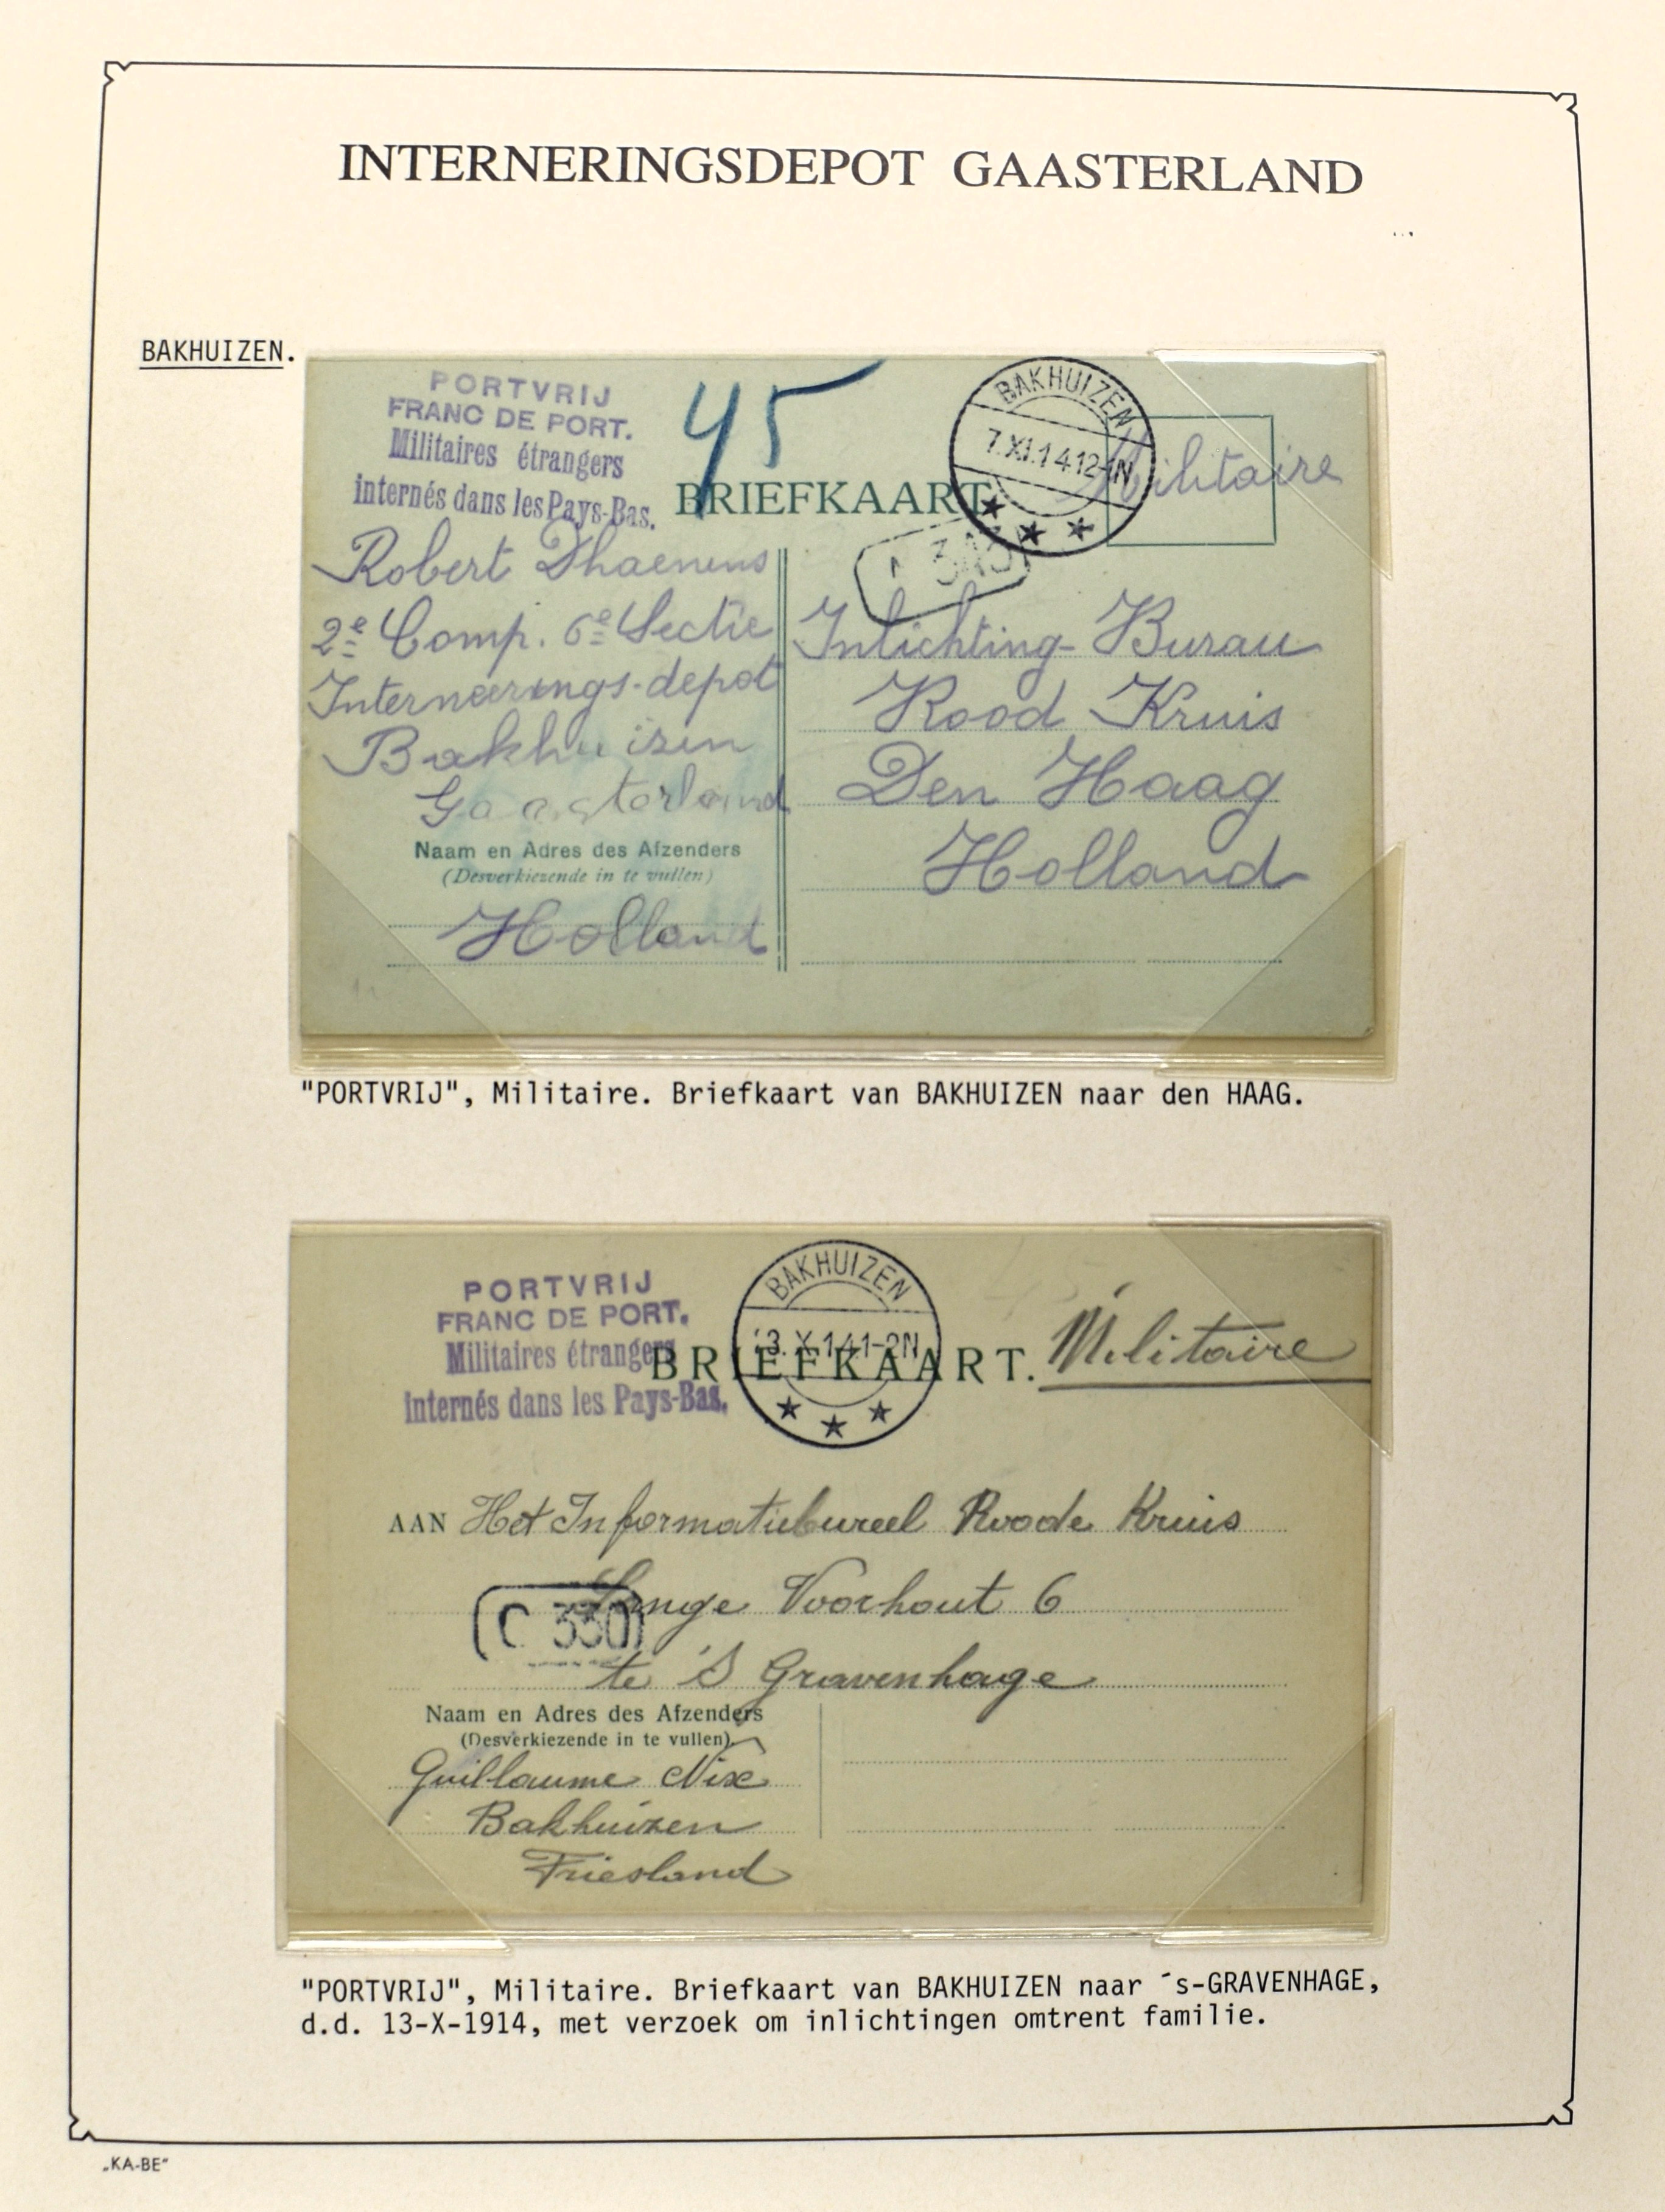 INTERNERINGSDEPOT GAASTERLAND
BAKHUIZEN.
PORTVRIJ
FRANC DE PORT.
Militaires étrangers
internés dans les Pays-Bas.
45
BRIEFKAART
BAKHUIZEN
7.XI.14.12-1N
Militaire
Robert Dhaenens
2e Comp. 6e Sectie
Interneerings-depot
Bakhuizen
Gaasterland
Naam en Adres des Afzenders
(Desverkiezende in te vullen)
Holland
Inlichting-Burau
Rood Kruis
Den Haag
Holland
"PORTVRIJ", Militaire. Briefkaart van BAKHUIZEN naar den HAAG.
PORTVRIJ
FRANC DE PORT.
Militaires étrangers
internés dans les Pays-Bas.
BAKHUIZEN
13.X.14 1-2N
BRIEFKAART.
Militaire
AAN Het Informatiebureel Roode Kruis
Lange Voorhout 6
C 330
te 's Gravenhage
Naam en Adres des Afzenders
(Desverkiezende in te vullen)
Guillaume Nix
Bakhuizen
Friesland
"PORTVRIJ", Militaire. Briefkaart van BAKHUIZEN naar ´s-GRAVENHAGE,
d.d. 13-X-1914, met verzoek om inlichtingen omtrent familie.
„KA-BE"